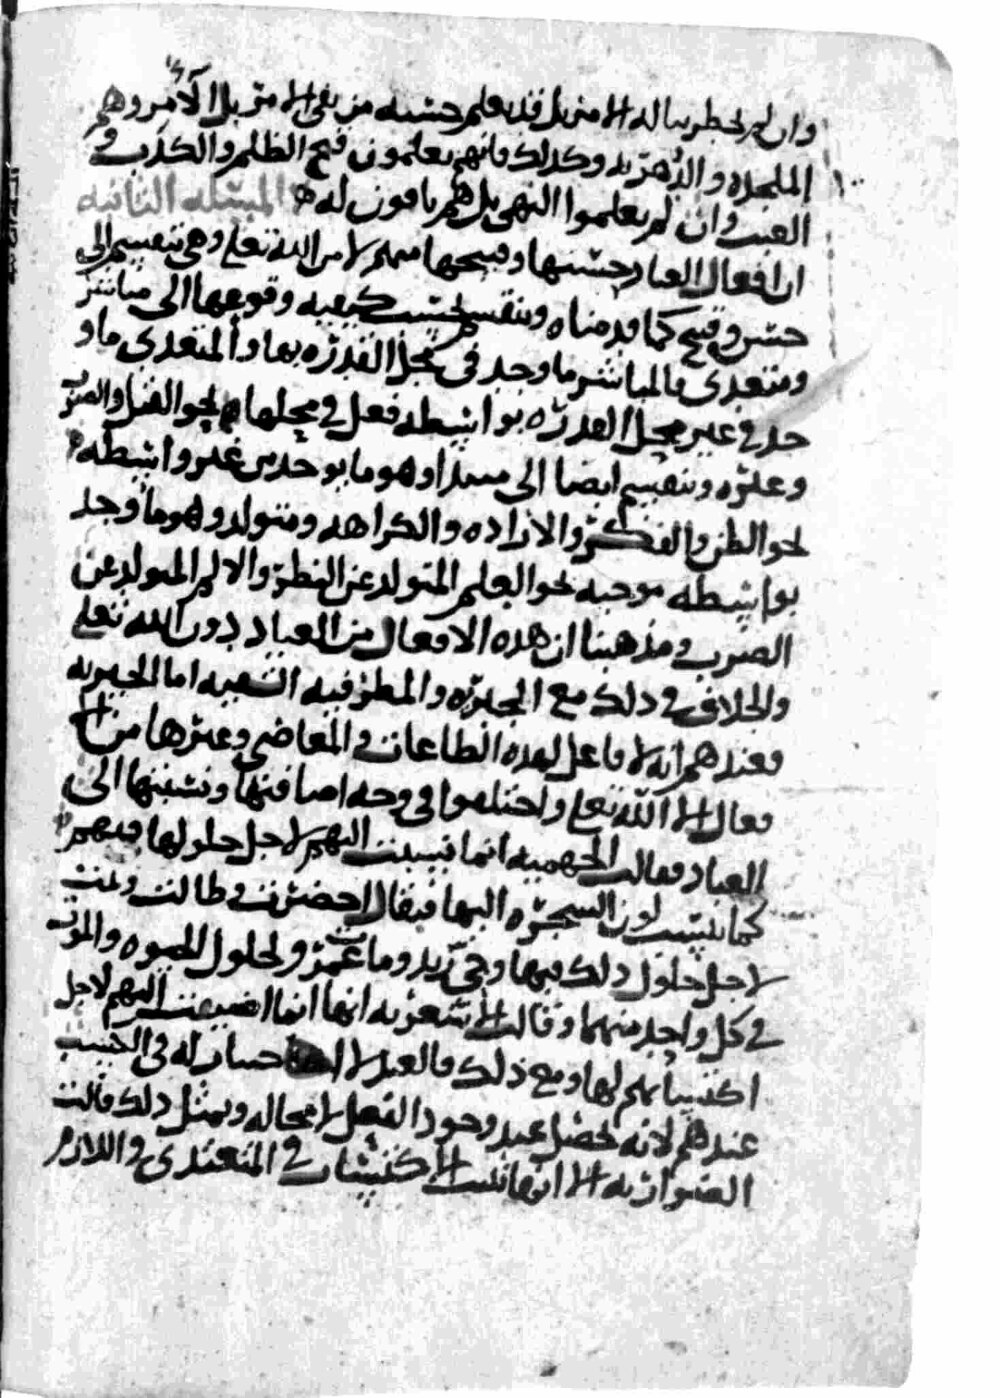 وان لم يخطر بباله الامر بل قد يعلم حسنه من ينفي الامر بل الآمر وهم
الملحده والدهريه وكذلك فانهم يعلمون قبح الظلم والكذب و
العبث وان لم يعلموا النهي بل هم نافون له المسئله الثانيه
ان افعال العباد حسنها وقبيحها منهم لا من الله تعلى وهي تنقسم الى
حسن وقبيح كما قدمناه وتنقسم بحسب كيفيه وقوعها الى مباشر
ومتعدي فالمباشر ما وجد في محل القدره بها والمتعدي ما و
جد في غير محل القدره بواسطه فعل في محلها نحو القتل والضرب
وغيره وتنقسم ايضا الى مبتدا وهو ما يوجد من غير واسطه
نحو الظن والفكر والاراده والكراهه ومتولد وهو ما وجد
بواسطه موجبه نحو العلم المتولد عن النظر والالم المتولد عن
الضرب ومذهبنا ان هذه الافعال من العباد دون الله تعلى
والخلاف في ذلك مع المجبره والمطرفيه الشعبه اما المجبره
فعندهم انه لا فاعل لهذه الطاعات والمعاصي وغيرها من الا
فعال الا الله تعلى واختلفوا في وجه اضافتها ونسبتها الى
العباد فقالت الجهميه انما نسبت اليهم لاجل حلولها فيهم
كما ينسب لون الشجره اليها فيقال اخضرت وطالت ونمت
لاجل حلول ذلك فيها وحي زيد ومات عمرو لحلول الحيوه والموت
في كل واحد منهما وقالت الاشعريه انها انما اضيفت اليهم لاجل
اكتسابهم لها ومع ذلك فالعبد لا اختيار له في الكسب
عندهم لانه يحصل عند وجود الفعل لا محاله وبمثل ذلك قالت
الضراريه الا انها اثبتت الاكتساب في المتعدي واللازم